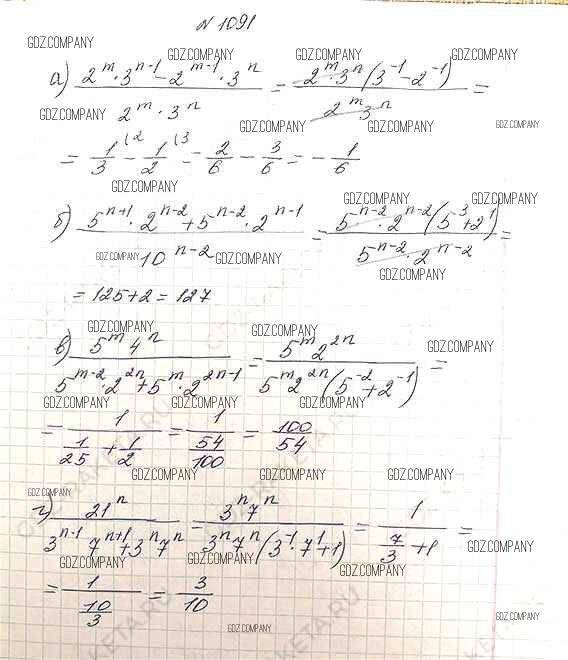 N 1091
GDZ.COMPANY
GDZ.COMPANY GDZ.COMPANY GDZ.COMPANY
а) (2^m · 3^(n-1) - 2^(m-1) · 3^n) / (2^m · 3^n) = (2^m · 3^n (3^(-1) - 2^(-1))) / (2^m 3^n) =
GDZ.COMPANY GDZ.COMPANY GDZ.COMPANY GDZ.COMPANY
= 1/3 (2 - 1/2 (3 = 2/6 - 3/6 = - 1/6
GDZ.COMPANY GDZ.COMPANY GDZ.COMPANY
б) (5^(n+1) · 2^(n-2) + 5^(n-2) · 2^(n-1)) / 10^(n-2) = (5^(n-2) · 2^(n-2) (5^3 + 2^1)) / (5^(n-2) · 2^(n-2)) =
GDZ.COMPANY GDZ.COMPANY GDZ.COMPANY
= 125 + 2 = 127
GDZ.COMPANY GDZ.COMPANY
в) (5^m 4^n) / (5^(m-2) · 2^(2n) + 5^m · 2^(2n-1)) = (5^m 2^(2n)) / (5^m 2^(2n) (5^(-2) + 2^(-1))) =
GDZ.COMPANY GDZ.COMPANY GDZ.COMPANY
= 1 / (1/25 + 1/2) = 1 / (54/100) = 100/54
GDZ.COMPANY GDZ.COMPANY GDZ.COMPANY
GDZ.COMPANY
г) 21^n / (3^(n-1) 7^(n+1) + 3^n 7^n) = (3^n 7^n) / (3^n 7^n (3^(-1) · 7^1 + 1)) = 1 / (7/3 + 1) =
GDZ.COMPANY GDZ.COMPANY GDZ.COMPANY GDZ.COMPANY
= 1 / (10/3) = 3/10
GDZ.COMPANY GDZ.COMPANY